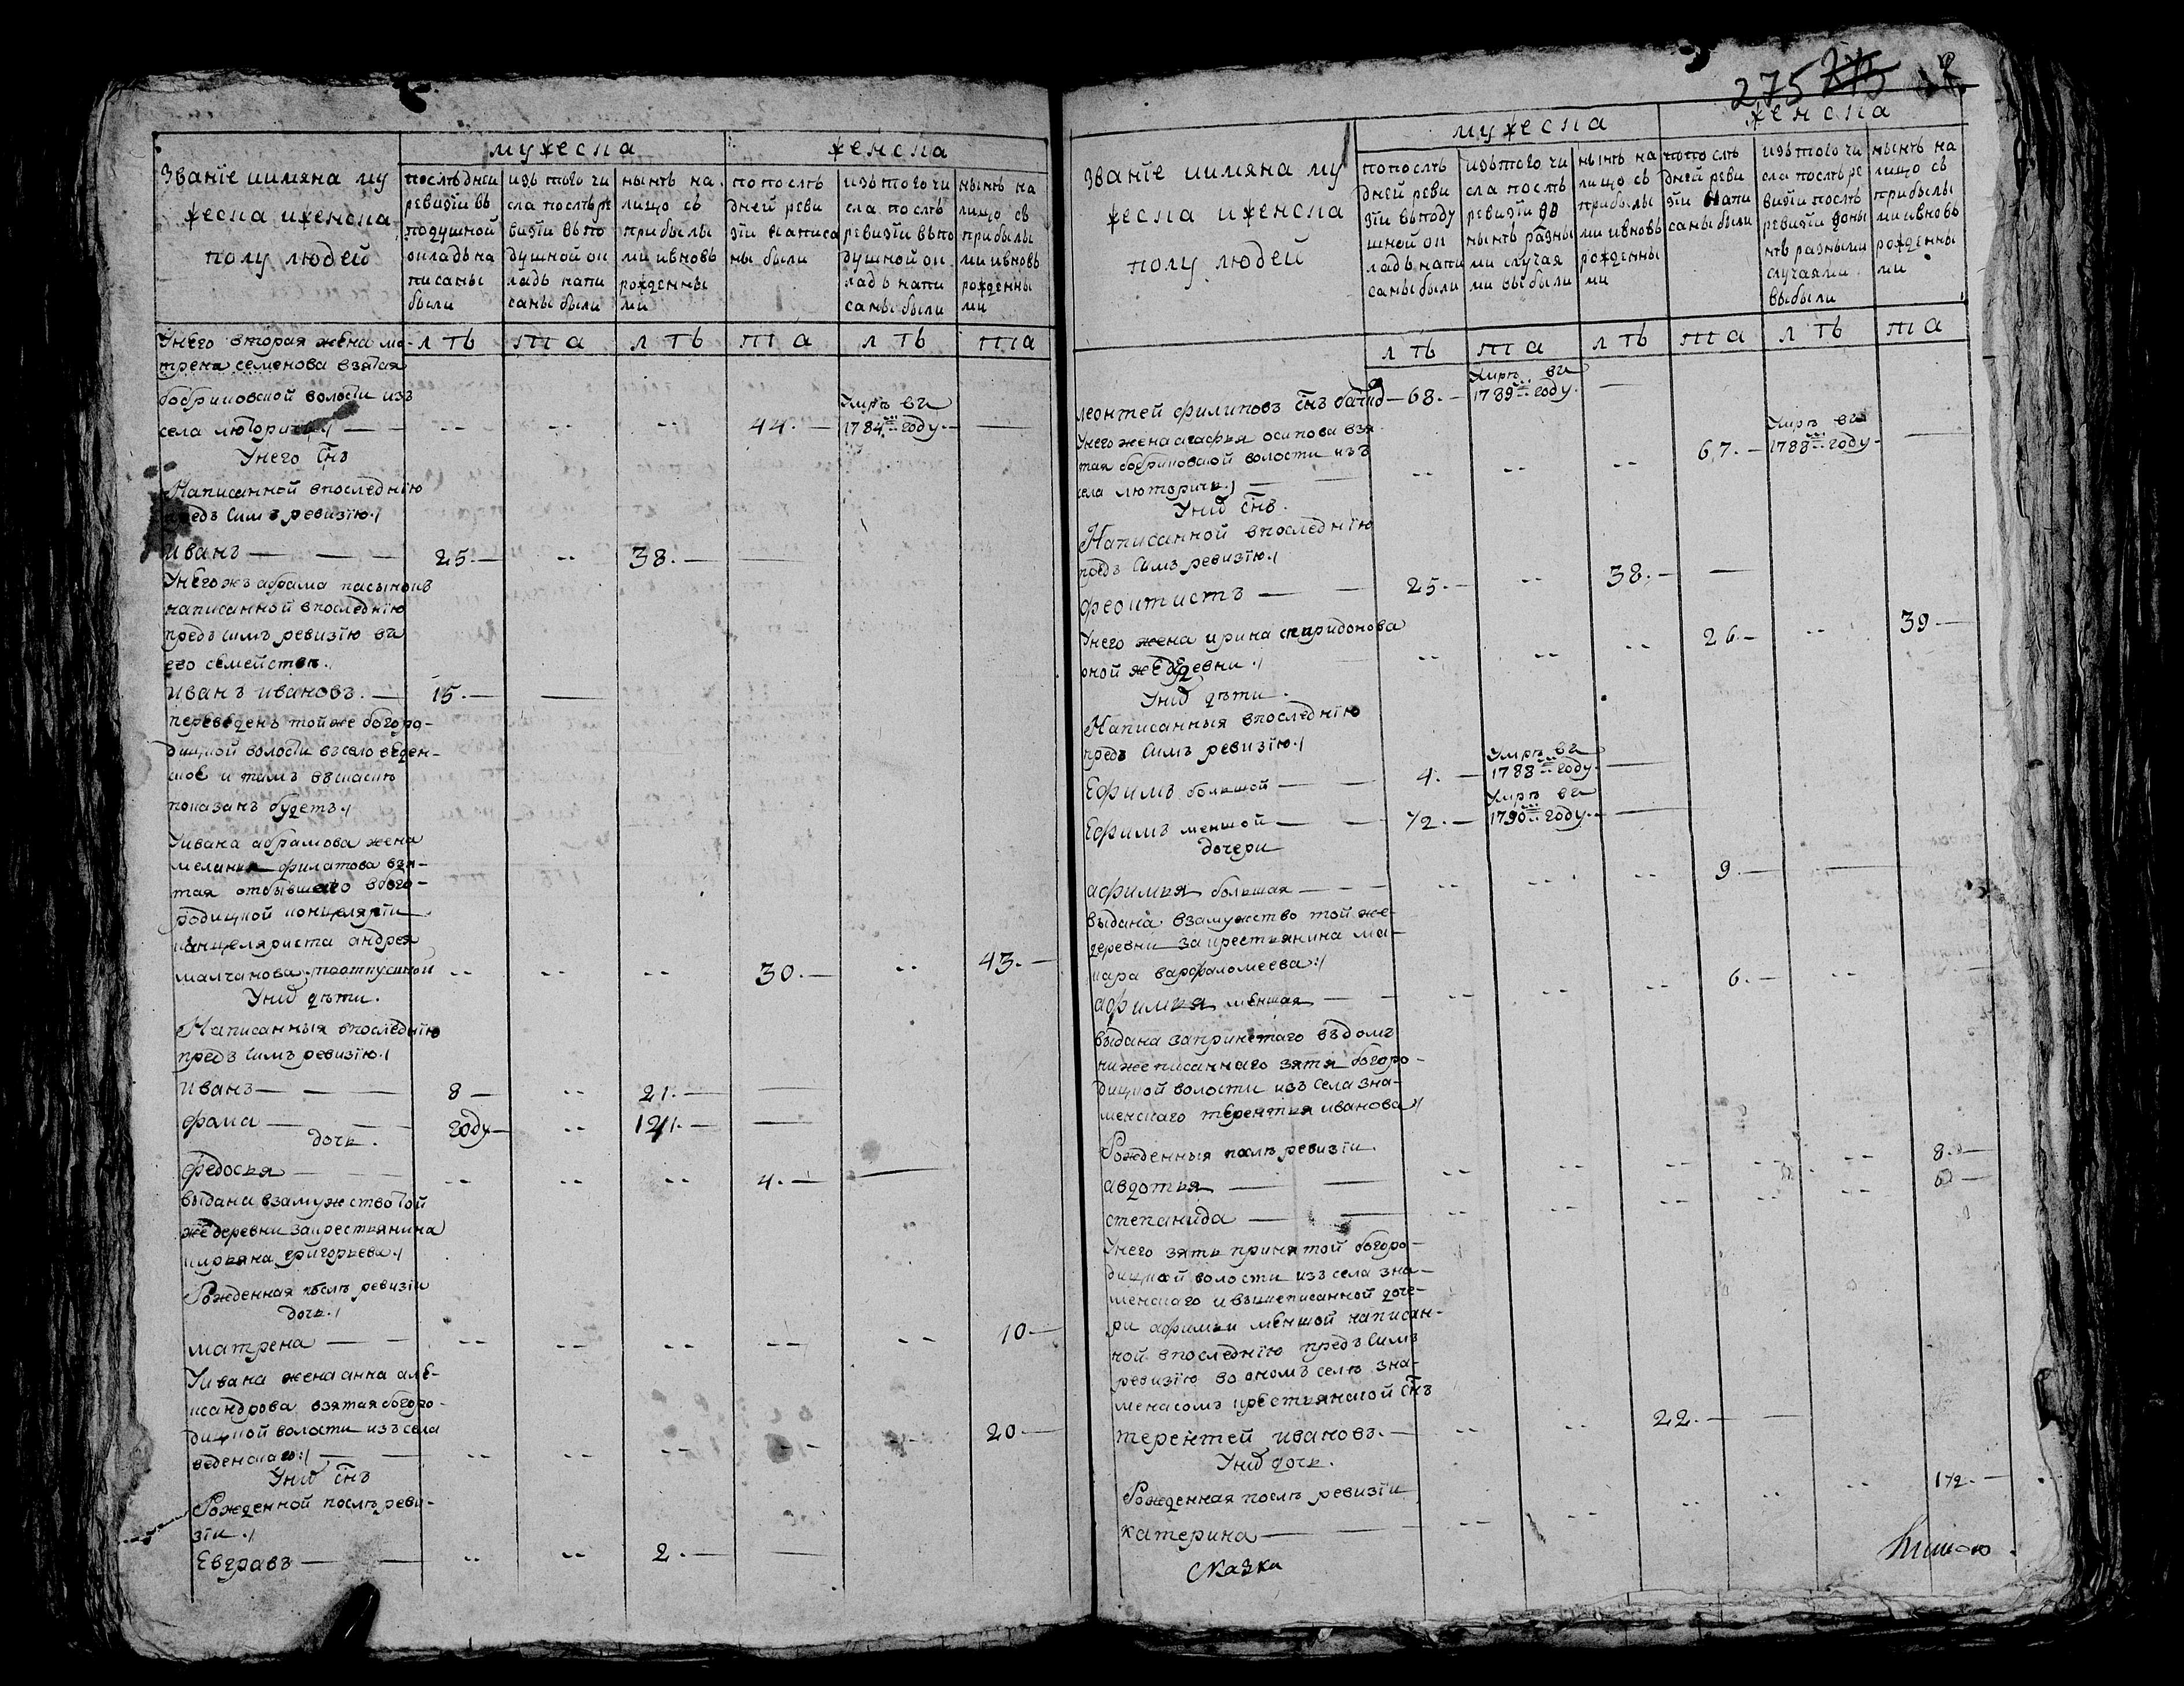 275 275
мужеска
женска
Званiе иимяна му
жеска иженска
полу людей
последней
ревизiи въ
подушной
окладъ на
писаны
были
изъ того чи
сла послѣ ре
визiи въ по
душной ок
ладъ напи
саны были
нынѣ на
лицо съ
прибылы
ми ивновь
рожденны
ми
по послѣ
дней реви
зiи написа
ны были
изъ того чи
сла послѣ
ревизiи въ по
душной ок
ладъ напи
саны были
нынѣ на
лицо съ
прибылы
ми ивновь
рожденны
ми
лѣ та лѣ та лѣ та
Унего вторая жена ма-
трена семенова взятая
бобриковской волости изъ
села люторичь 44. Умрѣ въ 1784м году.
Унего сн҃ъ
Написанной впоследнiю
предъ симъ ревизiю
иванъ 25. 38.
Унегожъ абрама пасынокъ
написанной впоследнiю
предъ симъ ревизiю въ
его семействѣ
иванъ ивановъ. 15.
переведенъ тойже богоро-
дицкой волости въ село веден-
ское и тамъ въ скаскѣ
показанъ будетъ
Уивана абрамова жена
меланья филатова взя-
тая отбывшаго вбого-
родицкой концелярiи
канцеляриста андрея
малчанова поотпускной 30. 43.
Уних дѣти.
Написанныя впоследнiю
предъ симъ ревизiю
иванъ 8 21.
фама году
дочь.
федосья 4.
выдана взамужство той
же деревни закрестьянина
кирьяна григорьева
Рожденная послѣ ревизiи
дочь
матрена 10
Уивана жена анна але-
ксандрова взятая богоро-
дицкой волости изъ села
веденскаго 20
Уних сн҃ъ
Рожденной послѣ реви-
зiи
Евгравъ 2.
мужеска
женска
Званiе иимяна му
жеска иженска
полу людей
попослѣ
дней реви
зiи въ поду
шной ок
ладъ напи
саны были
изъ того чи
сла послѣ
ревизiи до
нынѣ разны
ми случая
ми выбыли
нынѣ на
лицо съ
прибылы
ми ивновь
рожденны
ми
попослѣ
дней реви
зiи напи
саны были
изъ того чи
сла послѣ ре
визiи послѣ
ревизiи доны
нѣ разными
случаями
выбыли
нынѣ на
лицо съ
прибылы
ми ивновь
рожденны
ми
лѣ та лѣ та лѣ та
леонтей филиповъ сн҃ъ 68. Умрѣ въ 1789м году.
Унего жена агафья осипова взя
тая бобриковской волости изъ
села люторичь 67. Умрѣ въ 1788м году
Уних сн҃ъ.
Написанной впоследнiю
предъ симъ ревизiю
феоктистъ 25. 38.
Унего жена ирина спиридонова
оной же деревни 26. 39
Уних дѣти.
Написанныя впоследнiю
предъ симъ ревизiю
Ефимъ большой 4. Умрѣ въ 1788м году.
Ефимъ меншой 1/2. Умрѣ въ 1790м году.
дочери
афимья большая 9.
выдана взамужство той же
деревни закрестьянина ма-
кара варфаломеева
афимья меншая 6.
выдана запринетаго въдомъ
нижеписаннаго зятя богоро-
дицкой волости изъ села зна-
менскаго терентья иванова
Рожденныя послѣ ревизiи
авдотья 8.
степанида 6
Унего зять принятой богоро-
дицкой волости изъ села зна-
менскаго ивышеписанной доче-
ри афимьи меншой написан-
ной впоследнiю предъ симъ
ревизiю во ономъ селѣ зна-
менскомъ крестьянской сн҃ъ
терентей ивановъ. 22.
Уних дочь.
Рожденная послѣ ревизiи
катерина 1/2.
Сказка